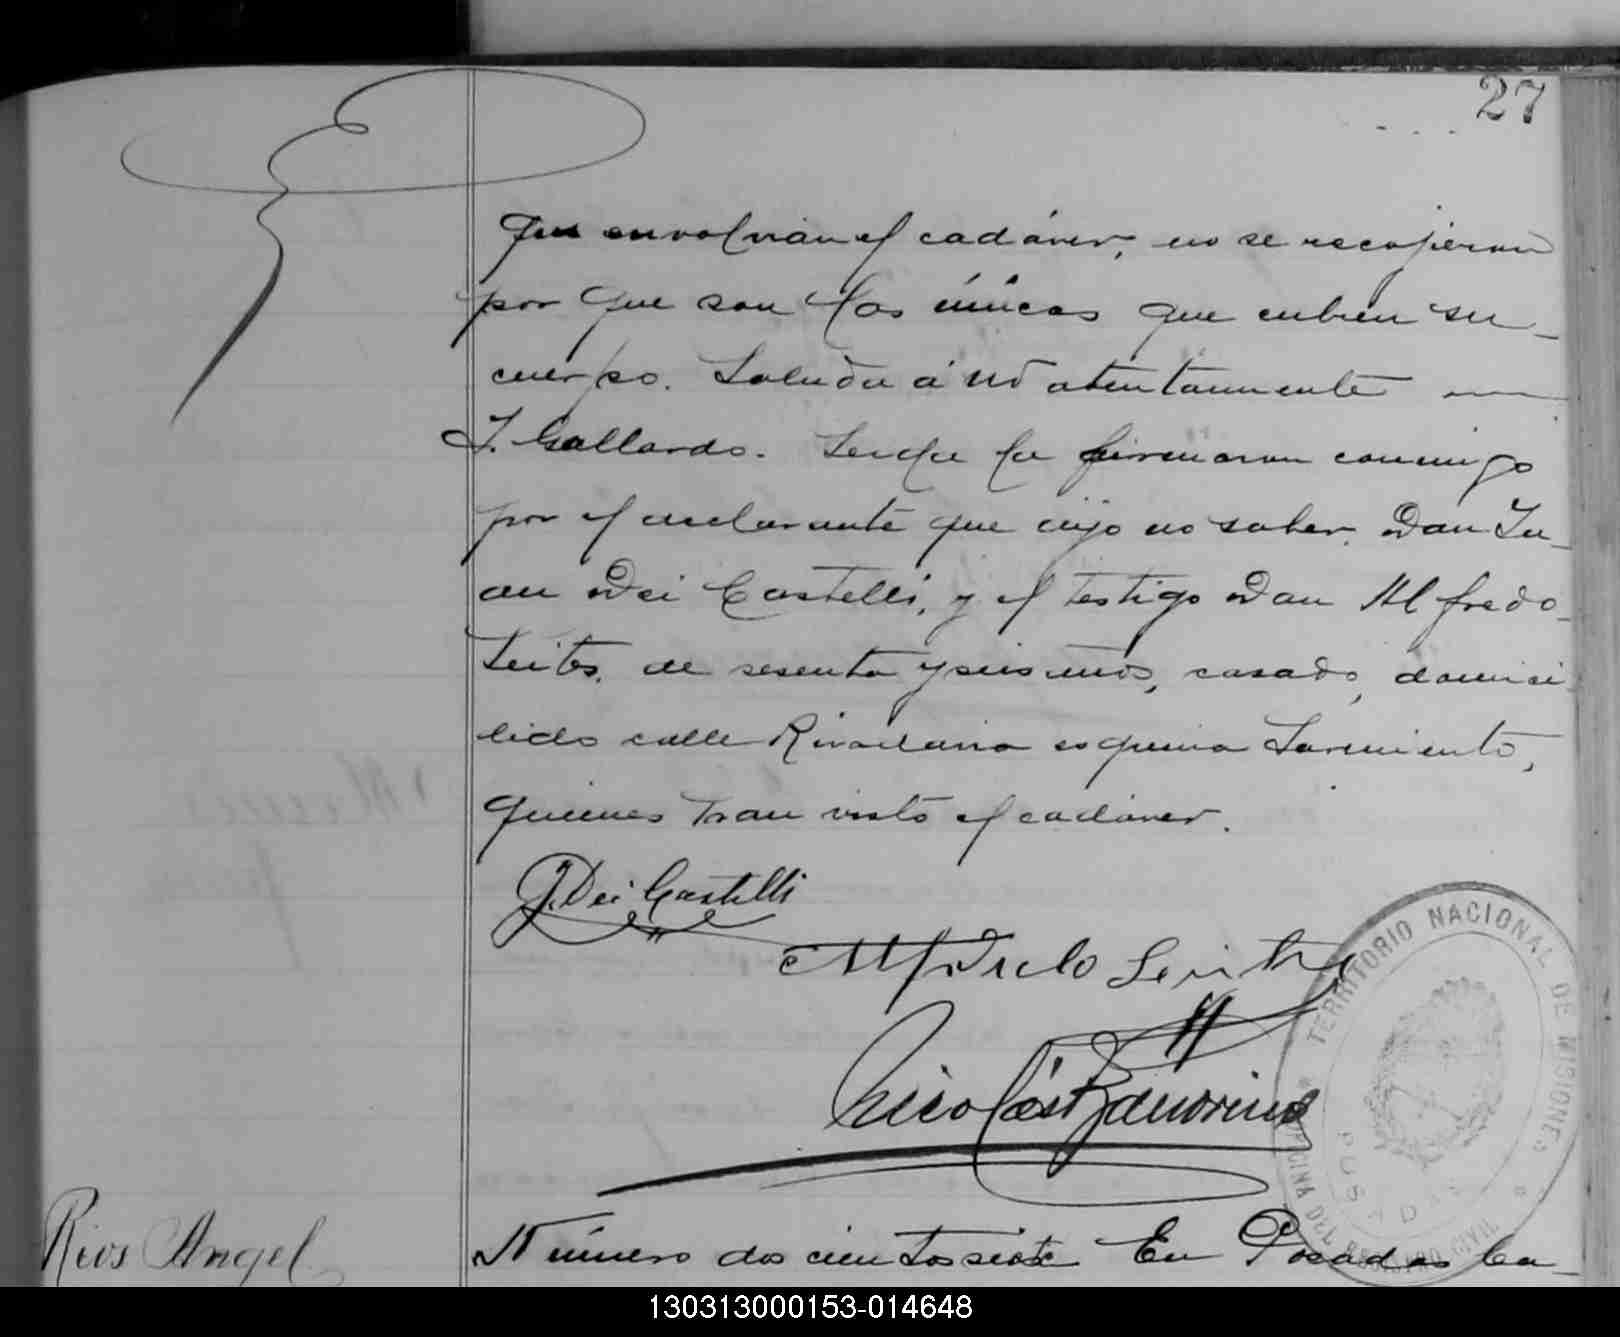 27
que envolvian el cadáver, no se recojieron
por que son las únicas que cubren su
cuerpo. Saluda á Ud atentamente
J. Gallardo. Leida la firmaron conmigo
por el declarante que dijo no saber. Don Ju-
an Dei Castelli, y el testigo Don Alfredo
Leites, de sesenta y seis años, casado, domici
liado calle Rivadavia esquina Sarmiento,
quienes han visto el cadáver.
J. Dei Castelli
Alfredo Leites
Nicolás
TERRITORIO NACIONAL DE MISIONES
OFICINA DEL REGISTRO CIVIL
POSADAS
Rios Angel
Número dos cientos siete En Posadas Ca-
130313000153-014648